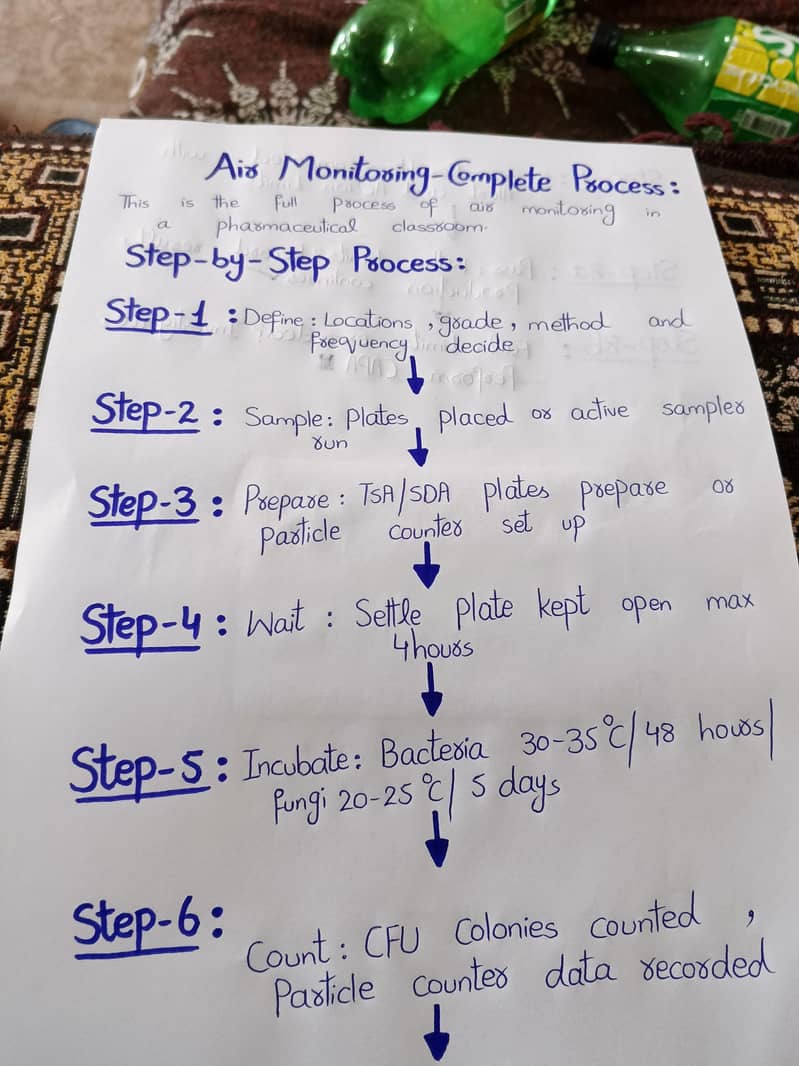 Air Monitoring-Complete Process:
This is the full process of air monitoring in
a pharmaceutical classroom.
Step-by-Step Process:
Step-1 : Define : Locations , grade , method and
frequency decide
Step-2 : Sample : Plates placed or active sampler
run
Step-3 : Prepare : TSA/SDA plates prepare or
Particle counter set up
Step-4 : Wait : Settle Plate kept open max
4hours
Step-5 : Incubate : Bacteria 30-35°C/48 hours/
fungi 20-25°C/ 5 days
Step-6 :
Count : CFU Colonies counted ,
Particle counter data recorded